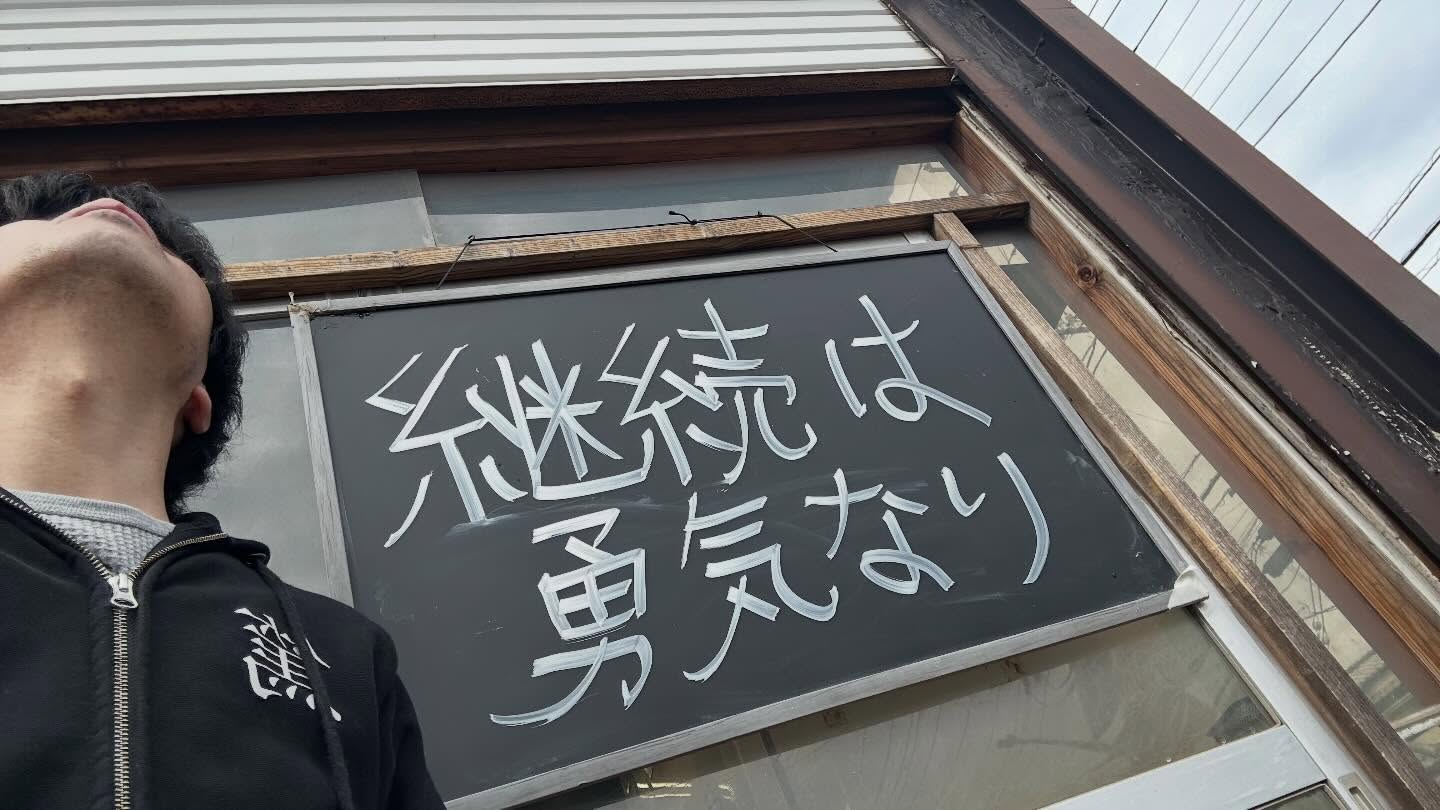 継続は
勇気なり